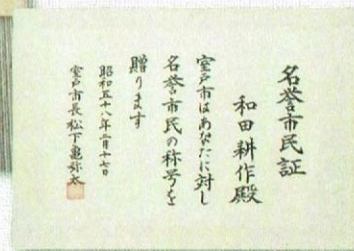 名誉市民証
和田耕作殿
室戸市はあなたに対し
名誉市民の称号を
贈ります
昭和五十八年二月十七日
室戸市長松下亀弥太